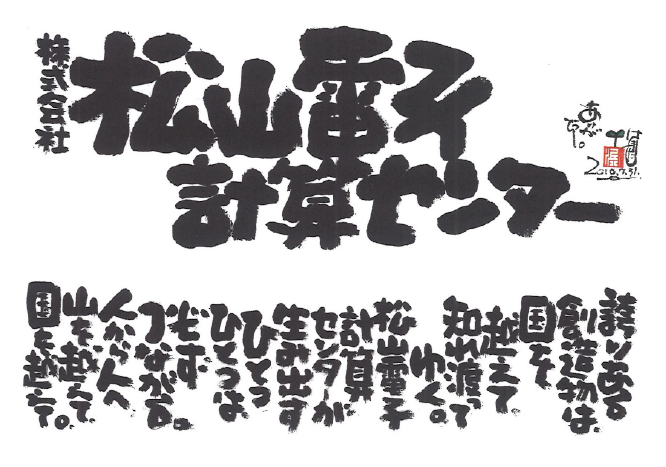 株式会社
松山電子
計算センター
ありがとう。
2010.7.31.
誇りある
創造物は、
国を
越えて
知れ渡って
ゆく。
松山電子
計算
センターが
生み出す
ひとつ
ひとつは
必ず
つながる。
人から人へ
山を越えて、
国を越えて。